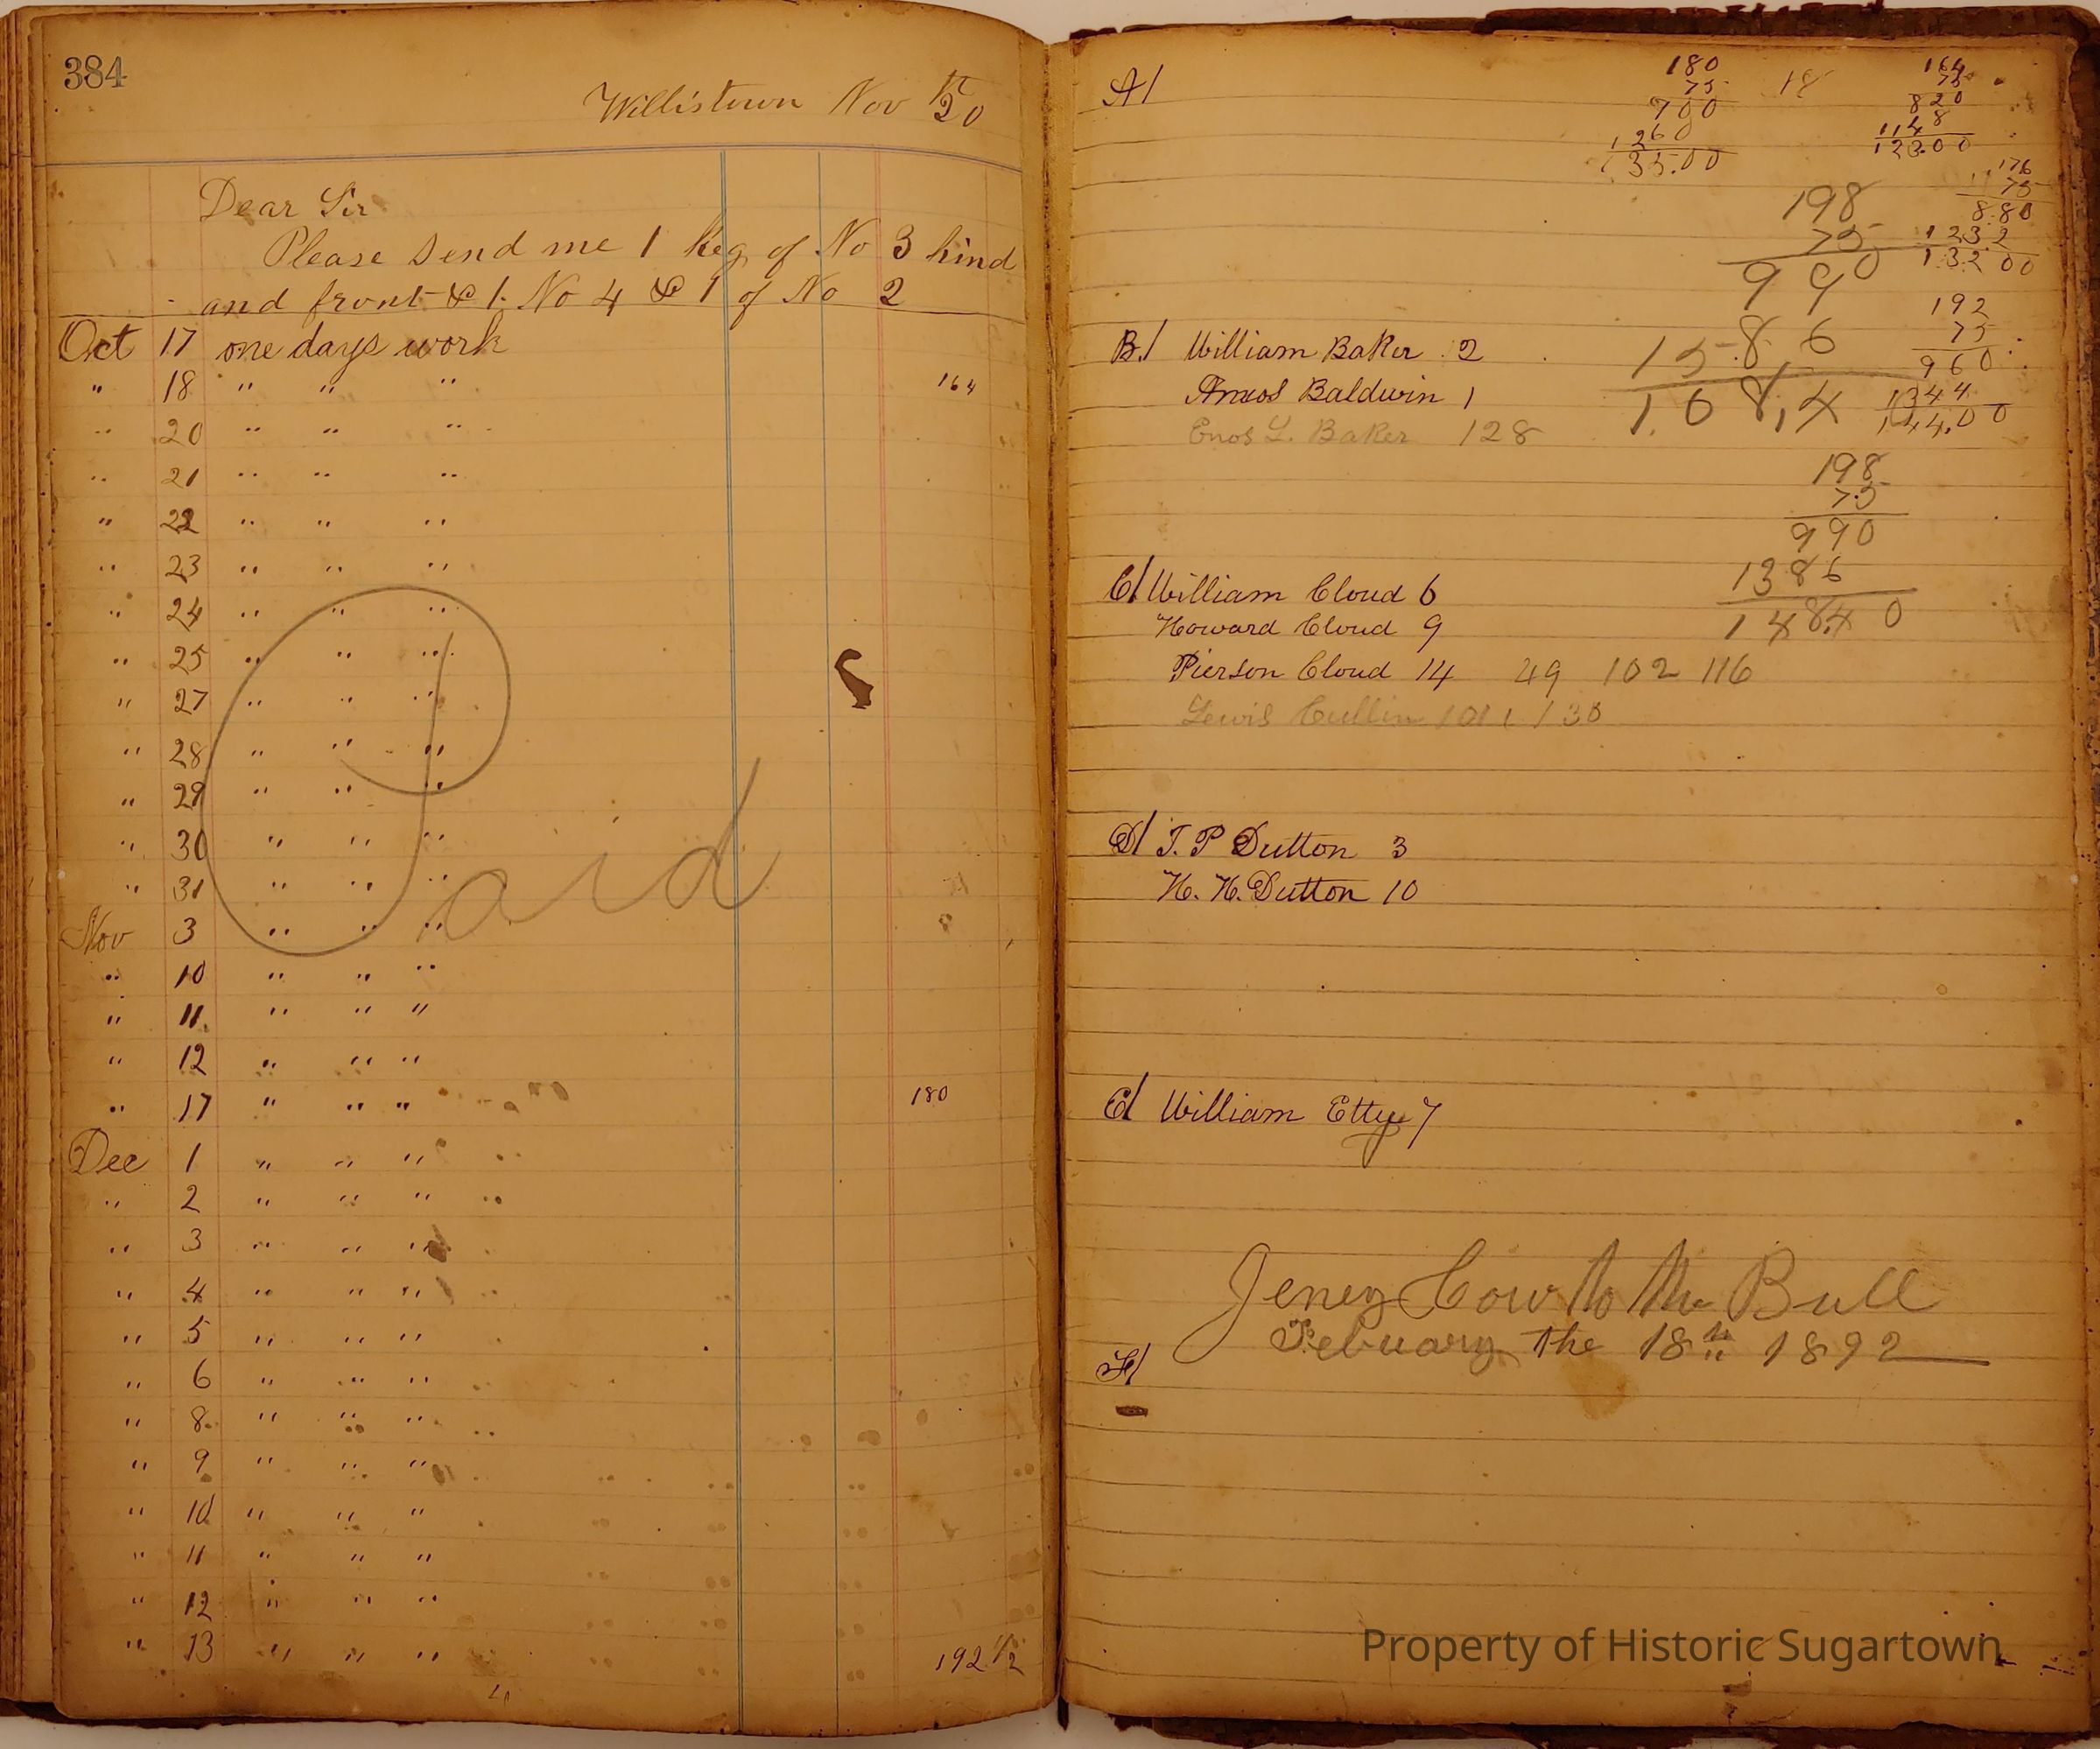 384
Willistown Nov 20
Dear Sir
Please send me 1 keg of No 3 hind
and front & 1 No 4 & 1 of No 2
Oct 17 one days work
" 18 " " " 164
" 20 " " "
" 21 " " "
" 22 " " "
" 23 " " "
" 24 " " "
" 25 " " "
" 27 " " "
" 28 " " "
" 29 " " "
" 30 " " "
" 31 " " "
Paid
Nov 3 " " "
" 10 " " "
" 11 " " "
" 12 " " "
" 17 " " " 180
Dec 1 " " "
" 2 " " "
" 3 " " "
" 4 " " "
" 5 " " "
" 6 " " "
" 8 " " "
" 9 " " "
" 10 " " "
" 11 " " "
" 12 " " "
" 13 " " " 192 1/2
A/
180
75
700
1260
135.00
18
164
75
820
1148
123.00
176
75
8.80
1232
132 00
198
75
990
192
75
960
1344
144.00
B/ William Baker 2
Amos Baldwin 1
Enos L. Baker 128
198
75
990
1386
C/ William Cloud 6
Howard Cloud 9
Pierson Cloud 14 49 102 116
Lewis Cullin
D/ T. P Dutton 3
H. H. Dutton 10
E/ William Ettey 7
Jeney Cow to the Bull
Febuary the 18th 1892
F/
Property of Historic Sugartown